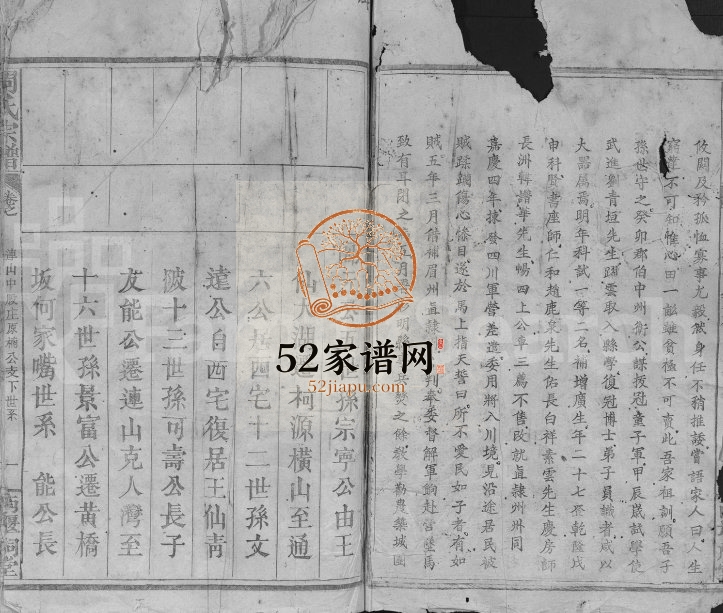 伎閼及矜孤恤寡事尤毅然身任不稍推諉嘗語家人曰人生
窮達不可知惟心田一畝雖貧極不可賣此吾家祖訓願吾子
孫世守之癸卯郡伯中州衛公課拔冠童子軍甲辰歲試學使
武進劉青垣先生躍雲取入縣學復冠博士弟子員識者咸以
大器屬焉明年科試一等二名補增廣生年二十七登乾隆戊
申科賢書座師仁和趙鹿泉先生佑長白祥素雲先生慶房師
長洲韓譜華先生暢四上公車三薦不售改就直隸州州同
嘉慶四年揀發四川軍營差遣委用將入川境見沿途居民被
賊蹂躪傷心慘目遂於馬上指天誓曰所不愛民如子者有如
賊五年三月借補眉州直隸 判奉委督解軍餉赴營墜馬
致有耳閉之 月 明 焚之餘敎學勸農築城團
孫宗寧公由王
仙大湖 柯源橫山至通
六公 西宅十二世孫文
達公自西宅復居王仙青
陂十三世孫可壽公長子
友能公遷連山克人灣至
十六世孫景富公遷黃橋
坂何家嘴世系 能公長
氏宗譜
卷之
連山中 庄原橋公支下世系
一
52家谱网
52jiapu.com